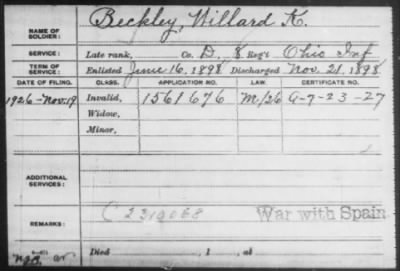 NAME OF SOLDIER: Beckley, Willard K.
SERVICE: Late rank, Co. D, 8 Reg't Ohio Inf
TERM OF SERVICE: Enlisted June 16, 1898 Discharged Nov. 21, 1898
DATE OF FILING. CLASS. APPLICATION NO. LAW. CERTIFICATE NO.
1926-Nov. 19 Invalid, 1561676 M/26 A-7-23-27
Widow,
Minor,
ADDITIONAL SERVICES:
C 2319068 War with Spain
REMARKS:
Died , 1 , at